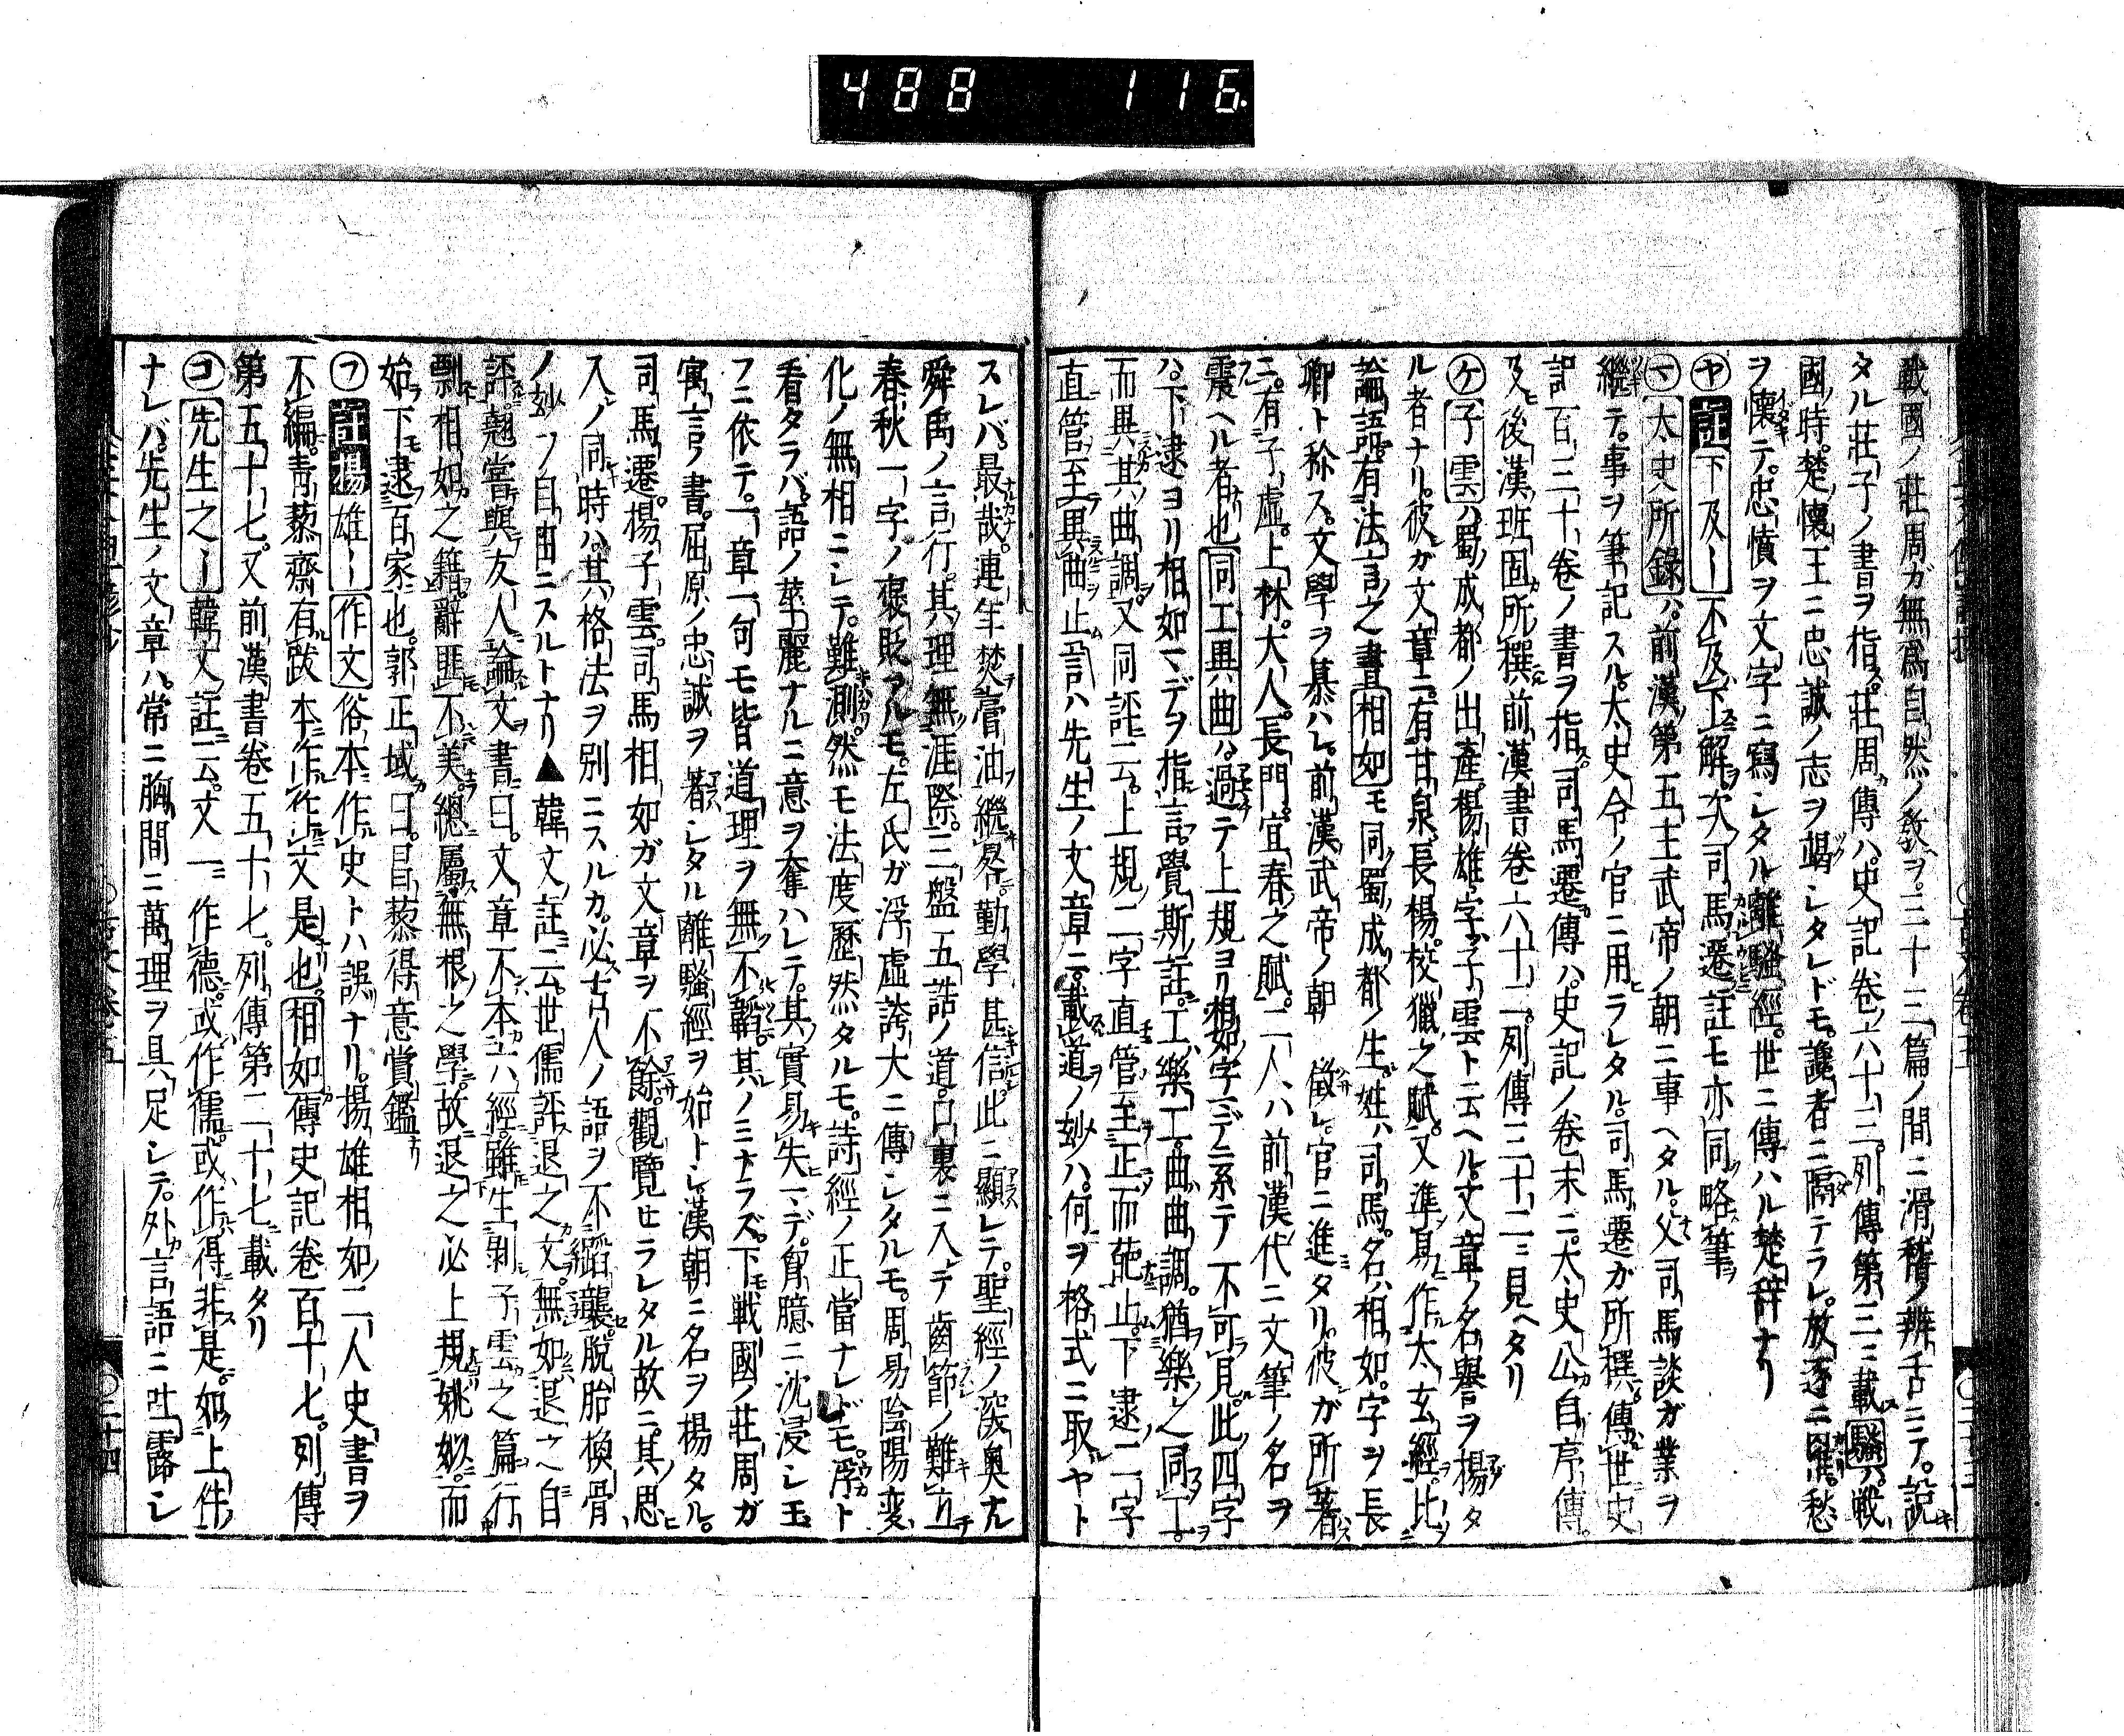 488 116
戰國ノ莊周ガ無爲自然ノ教ヲ。三十三篇ノ間ニ滑稽ノ辨舌ニテ。説
タル莊子ノ書ヲ指ス。莊周傳ハ。史記卷六十三。列傳第三ニ載ス騷ハ。戰
國ノ時。楚ノ懷王ニ忠誠ノ志ヲ竭シタレドモ。讒者ニ隔テラレ。放逐ニ罹。愁
ヲ懷テ。忠憤ヲ文字ニ寫シタル離騷經。世ニ傳ハル楚辭ナリ
ヤ 註 下及ー 不及下解。次ノ司馬遷註モ亦同ク略筆ヲ
マ 太史所錄ハ。前漢ノ第五主武帝ノ朝ニ事ヘタル。父司馬談ガ業ヲ
繼テ。事ヲ筆記スル。太史令ノ官ニ用ラレタル。司馬遷ガ所撰。傳世史
記一百三十卷ノ書ヲ指ス。司馬遷傳ハ。史記ノ卷末ニ。太史公自序傳。
及後漢班固所撰前漢書卷六十二。列傳三十二ニ見ヘタリ
ケ 子雲ハ。蜀ノ成都ノ出產。楊雄字子雲ト云ヘル。文章ノ名譽ヲ揚タ
ル者ナリ。彼ガ文章ニ。有甘泉。長楊。校獵之賦。又準易作太玄經。比
論語有法言之書 相如モ同ク蜀ノ成都ノ生。姓ハ司馬。名ハ相如。字ヲ長
卿ト称ス。文學ヲ慕ハレ。前漢武帝ノ朝 徵レ。官ニ進タリ。彼ガ所著
ニ。有子虛。上林。大人。長門。宜春之賦。二人ハ前漢代ニ文筆ノ名ヲ
震ヘル者也 同工異曲ハ。過テ上規ヨリ相如字マデニ系テ不可見。此四字
ハ。下逮ヨリ相如マデヲ指言。覺斯註。工樂工。曲曲調。猶樂之同工。
而異其曲調。又同評云。上規二字直管至正而葩止。下逮二字
直管至異曲止言ハ先生ノ文章ニ載道ノ妙ハ。何ヲ格式ニ取ヤト
スレバ。最哉。連年焚膏油繼晷。勤學甚信。此ニ顯レテ。聖經ノ深奥ナル
舜禹ノ言行。其理無涯際。三盤五誥ノ道。口裏ニ入テ齒節ノ難立
春秋一字ノ褒貶アルモ。左氏ガ浮虛誇大ニ傳シタルモ。周易陰陽変
化ノ無相ニシテ。難測。然モ法度歷然タルモ。詩經ノ正當ナレドモ。浮ト
看タラバ。語ノ華麗ナルニ意ヲ奪ハレテ。其實易失マデ。胷臆ニ沈浸シ玉
フニ依テ。一章一句モ皆道理ヲ無不韜其ノミナラズ。下戰國ノ莊周ガ
寓言ノ書。屈原ノ忠誠ヲ著シタル離騷經ヲ始トシ漢朝ニ名ヲ揚タル。
司馬遷。楊子雲。司馬相如ガ文章ヲ不餘。觀覽セラレタル故ニ。其思
入ノ同時ハ。其格法ヲ別ニスルカ。必古人ノ語ヲ不蹈襲。脱胎換骨
ノ妙フ自由ニスルトナリ▲韓文註云。世儒評退之文。無如退之自
評。嘗與友人論文書曰。文章不本六經雖生剝子雲之篇行
剽相如之籍。辭匪不美。總屬無根之學。故退之必上規姚姒。而
始下逮百家也。郭正域曰。昌黎得意賞鑑
フ 註揚雄ー 作文俗本作史トハ誤ナリ。揚雄相如二人史書ヲ
不編。靑藜齋有跋本作作文是也。相如傳史記卷百十七。列傳
第五十七。又前漢書卷五十七。列傳第二十七載タリ
コ 先生之ー 韓文註云。文一作德。或作儒。或作得非是。如上件
ナレバ。先生ノ文章ハ。常ニ胸間ニ萬理ヲ具足シテ。外言語ニ吐露シ